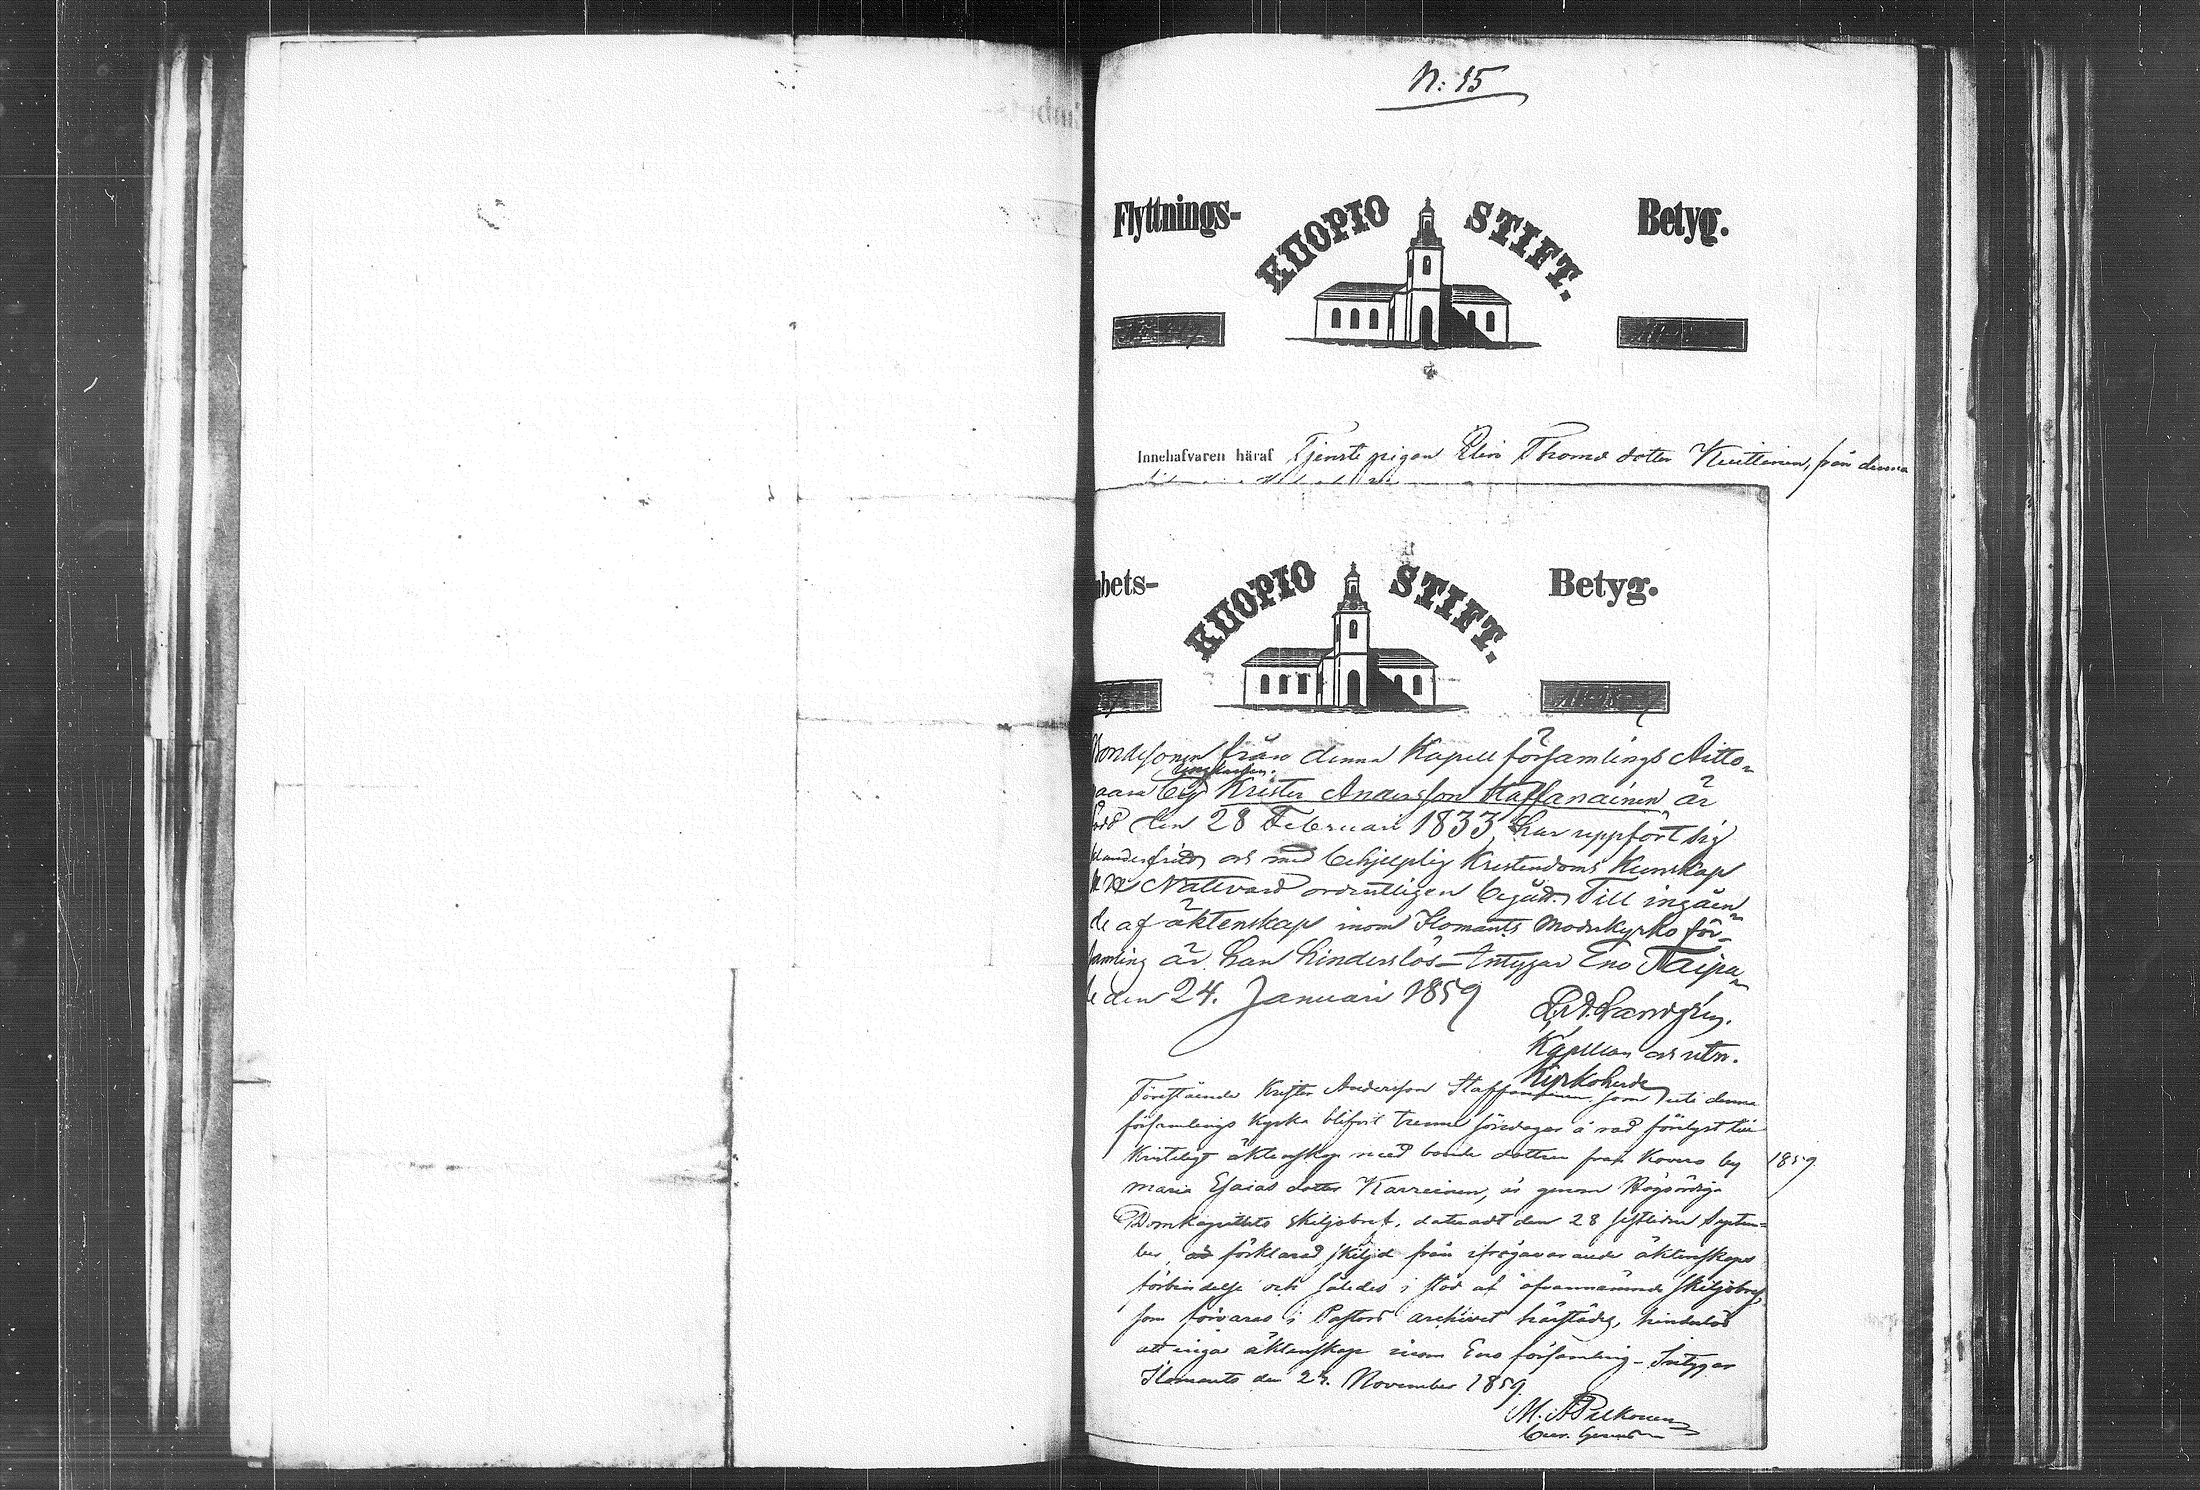 N: 15
Flyttnings- KUOPIO STIFT. Betyg.
Innehafvaren häraf Tjenste pigan Elin Thomæ dotter Kuittinen, från denna
mbets- KUOPIO STIFT. Betyg.
Bondesonen från denna Kapell församlings Aitto-
Ynglingen
vaara by Krister Andersson Staffanainen är
född den 28 Februari 1833, har uppfört sig
klanderfritt och med behjelplig Kristendoms Kunskap
H. H. Nattvard ordentligen begått. Till ingåen-
de af äktenskap inom Ilomants Moderkyrko för-
samling är han hinderslös – Intygar Eno Taipa-
le den 24. Januari 1859
Kapellan och utn.
Kyrkoherde
Förestående Krister Andersson Staffanainen som uti denna
församlings Kyrka blifvit trenne söndagar å rad förlyst till
Kristeligt äktenskap med bonde dottren från Kovero by 1859
Maria Esaias dotter Karreinen, är genom Högvördiga
Domkapitlets skiljobref, dateradt den 28 sistlidne Septem-
ber, förklarad skiljd från ifrågavarande äktenskaps
förbindelse och således i stöd af ofvannämnde skiljobref,
som förvaras i Pastors archivet härstädes, hinderlös
att ingå äktenskap inom Eno församling – Intygar
Ilomants den 24. November 1859.
M. A. Pelkonen